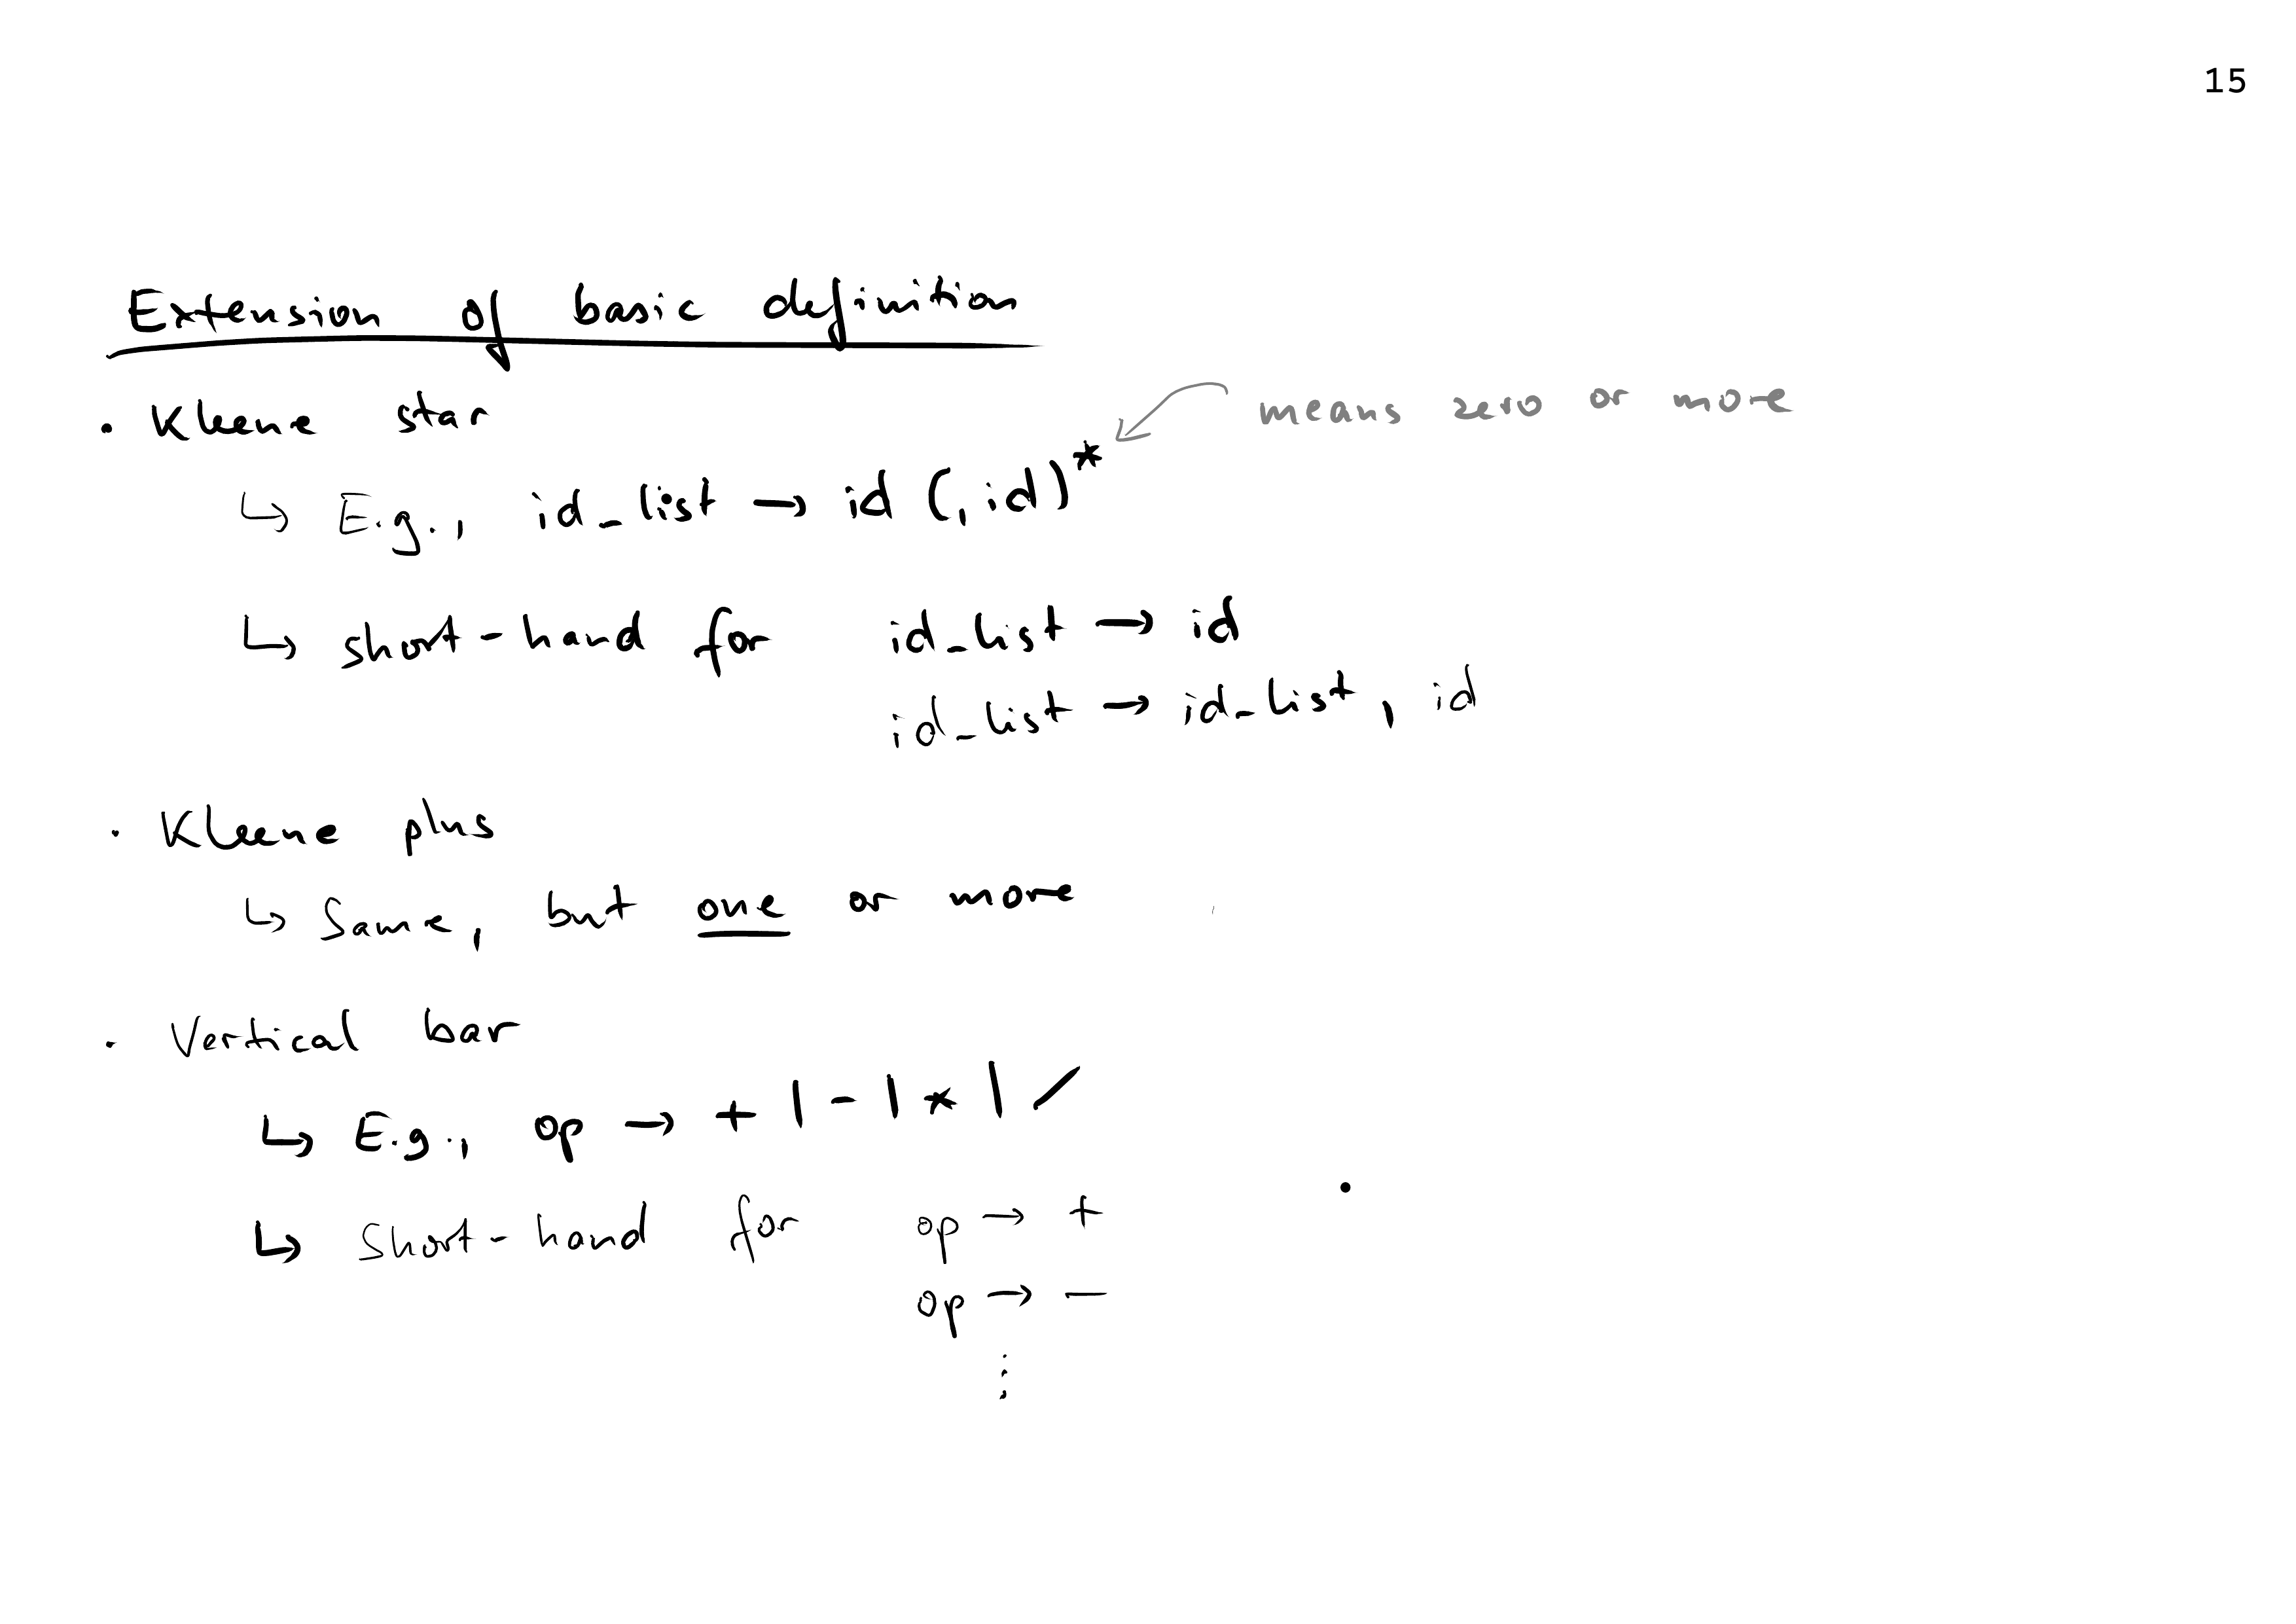 15
Extension of basic definition
• Kleene star
means zero or more
↳ E.g., id_list → id (, id)*
↳ short-hand for id_list → id
id_list → id_list, id
• Kleene plus
↳ Same, but one or more
• Vertical bar
↳ E.g., op → + | - | * | /
↳ Short-hand for op → +
op → -
⋮